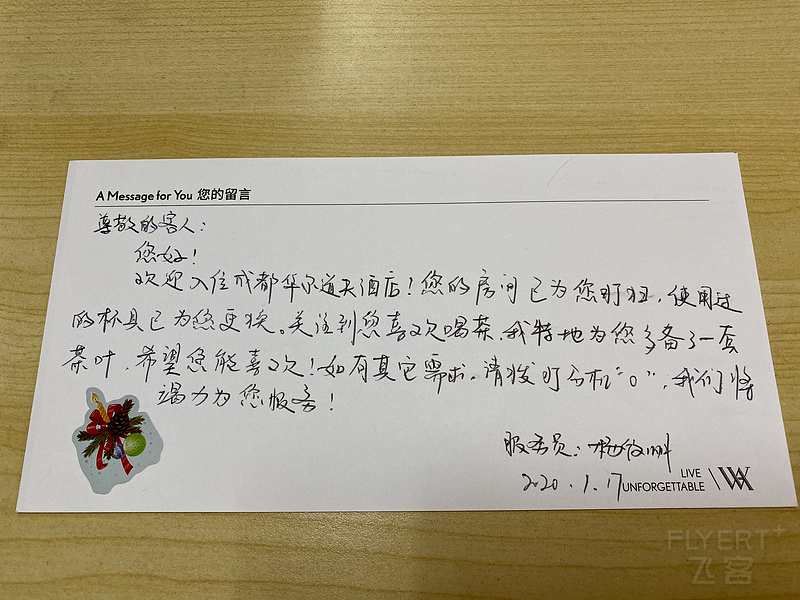 A Message for You 您的留言
尊敬的客人：
您好！
欢迎入住成都华尔道夫酒店！您的房间已为您打扫，使用过
的杯具已为您更换。关注到您喜欢喝茶，我特地为您多备了一套
茶叶，希望您能喜欢！如有其它需求，请拨打分机“0”，我们将
竭力为您服务！
服务员：杨
2020.1.17
LIVE
UNFORGETTABLE
FLYERT+
飞客